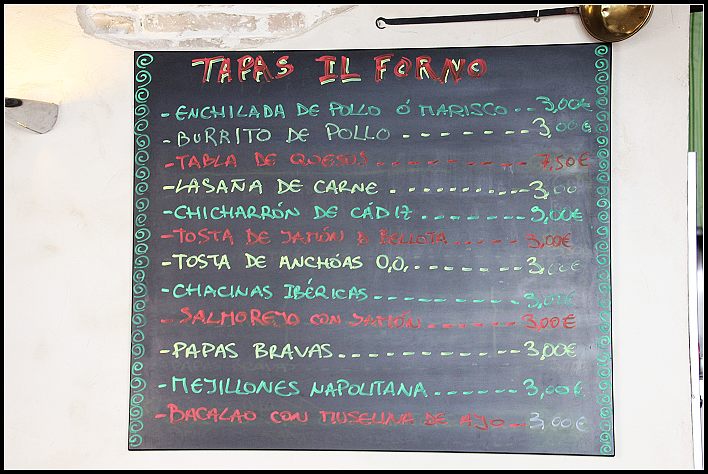 TAPAS IL FORNO
- ENCHILADA DE POLLO Ó MARISCO - - 3,00€
- BURRITO DE POLLO - - - - - - - 3,00€
- TABLA DE QUESOS - - - - - - - - 7,50€
- LASAÑA DE CARNE - - - - - - - - 3,00
- CHICHARRÓN DE CÁDIZ - - - - - - 3,00€
- TOSTA DE JAMÓN D BELLOTA - - - - - 3,00€
- TOSTA DE ANCHÓAS O,O, - - - - - - 3,00€
- CHACINAS IBÉRICAS - - - - - - - - 3,00€
- SALMOREJO CON JAMÓN - - - - - - 3,00€
- PAPAS BRAVAS - - - - - - - - - - 3,00€
- MEJILLONES NAPOLITANA - - - - - - 3,00€
- BACALAO CON MUSELINA DE AJO - - 3,00€